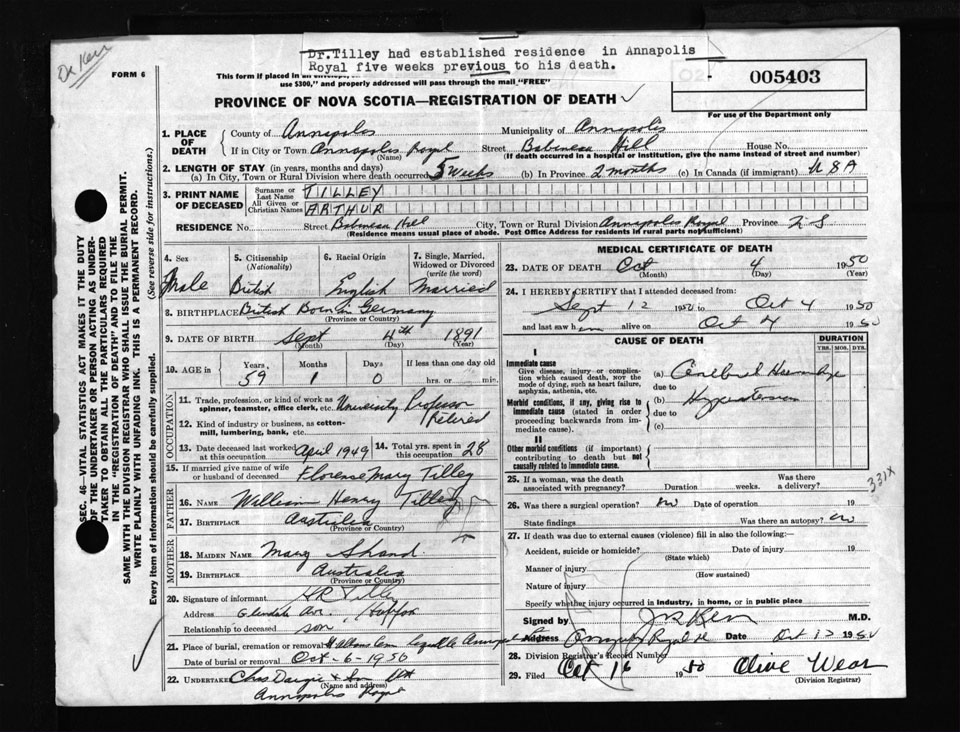 Dr Kerr
Dr.Tilley had established residence in Annapolis
Royal five weeks previous to his death.
FORM 6
This form if placed in an envelope,
$300," and properly addressed will pass through the mail "FREE"
005403
For use of the Department only
PROVINCE OF NOVA SCOTIA—REGISTRATION OF DEATH
1. PLACE OF DEATH
County of Annapolis Municipality of Annapolis
If in City or Town Annapolis Royal Street Hill House No.
(Name) (If death occurred in a hospital or institution, give the name instead of street and number)
2. LENGTH OF STAY (in years, months and days)
(a) In City, Town or Rural Division where death occurred 5 weeks (b) In Province 2 months (c) In Canada (if immigrant) U S A
3. PRINT NAME OF DECEASED
Surname or Last Name TILLEY
All Given or Christian Names ARTHUR
RESIDENCE No. Street Hill City, Town or Rural Division Annapolis Royal Province N S
(Residence means usual place of abode. Post Office Address for residents in rural parts not sufficient)
4. Sex Male
5. Citizenship (Nationality) British
6. Racial Origin English
7. Single, Married, Widowed or Divorced (write the word) Married
8. BIRTHPLACE British Born in Germany
(Province or Country)
9. DATE OF BIRTH Sept 4th 1891
(Month) (Day) (Year)
10. AGE in Years, Months Days If less than one day old
59 1 0 hrs. or min.
OCCUPATION
11. Trade, profession, or kind of work as spinner, teamster, office clerk, etc. University Professor
Retired
12. Kind of industry or business, as cotten-mill, lumbering, bank, etc.
13. Date deceased last worked at this occupation April 1949
14. Total yrs. spent in this occupation 28
15. If married give name of wife or husband of deceased Florence Mary Tilley
FATHER
16. NAME William Henry Tilley
17. BIRTHPLACE Australia
(Province or Country)
MOTHER
18. MAIDEN NAME Mary Shand
19. BIRTHPLACE Australia
(Province or Country)
20. Signature of informant Tilley
Address Glendale Ave. Halifax
Relationship to deceased son
21. Place of burial, cremation or removal
Date of burial or removal Oct-6-1950
22. Undertaker Chas Dargie & Son
(Name and address)
Annapolis Royal
MEDICAL CERTIFICATE OF DEATH
23. DATE OF DEATH Oct 4 1950
(Month) (Day) (Year)
24. I HEREBY CERTIFY that I attended deceased from:
Sept 12 1950 to Oct 4 1950
and last saw him alive on Oct 4 1950
CAUSE OF DEATH
DURATION
YRS. MOS. DYS.
I
Immediate cause
Give disease, injury or complication which caused death, not the mode of dying, such as heart failure, asphyxia, asthenia, etc.
(a) Cerebral Hemorrhage
due to
Morbid conditions, if any, giving rise to immediate cause (stated in order proceeding backwards from immediate cause).
(b) Hypertension
due to
(c)
II
Other morbid conditions (if important) contributing to death but not causally related to immediate cause.
25. If a woman, was the death associated with pregnancy? Duration weeks. Was there a delivery?
331X
26. Was there a surgical operation? no Date of operation 19
State findings Was there an autopsy? no
27. If death was due to external causes (violence) fill in also the following:—
Accident, suicide or homicide? Date of injury 19
(State which)
Manner of injury
(How sustained)
Nature of injury
Specify whether injury occurred in industry, in home, or in public place
Signed by Kerr M.D.
Address Annapolis Royal Date Oct 12 1950
28. Division Registrar's Record Number
29. Filed Oct 16 1950 Olive Wear
(Division Registrar)
SEC. 46—VITAL STATISTICS ACT MAKES IT THE DUTY
OF THE UNDERTAKER OR PERSON ACTING AS UNDER-
TAKER TO OBTAIN ALL THE PARTICULARS REQUIRED
IN THE "REGISTRATION OF DEATH" AND TO FILE THE
SAME WITH THE DIVISION REGISTRAR WHO SHALL ISSUE THE BURIAL PERMIT.
WRITE PLAINLY WITH UNFADING INK. THIS IS A PERMANENT RECORD.
Every item of information should be carefully supplied. (See reverse side for instructions.)